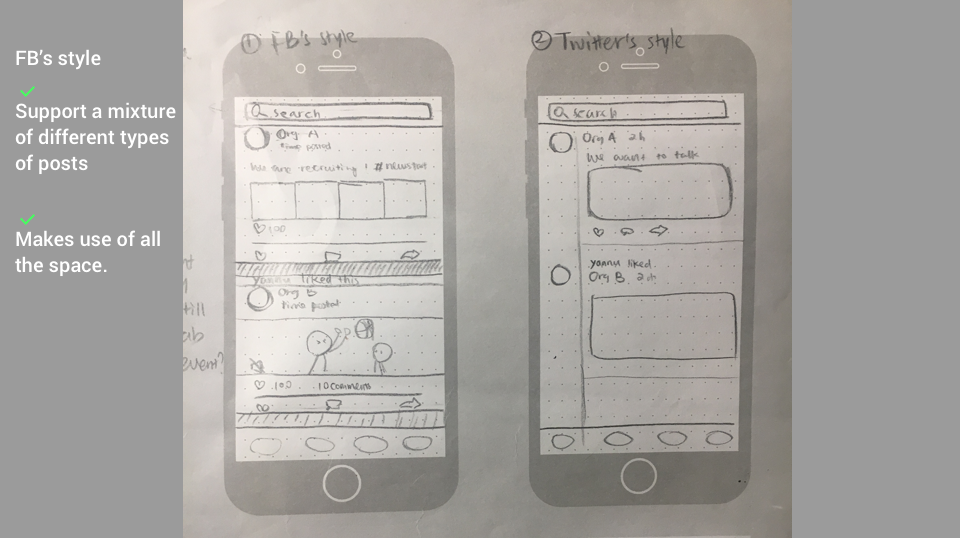 FB's style
Support a mixture
of different types
of posts
Makes use of all
the space.
till
ab
event?
① FB's style
search
Org A
time posted
We are recruiting! #newstart
100
yannu liked this
Org B
time postal
100 10 comments
② Twitter's style
search
Org A 2h
We want to talk
yannu liked.
Org B 2h